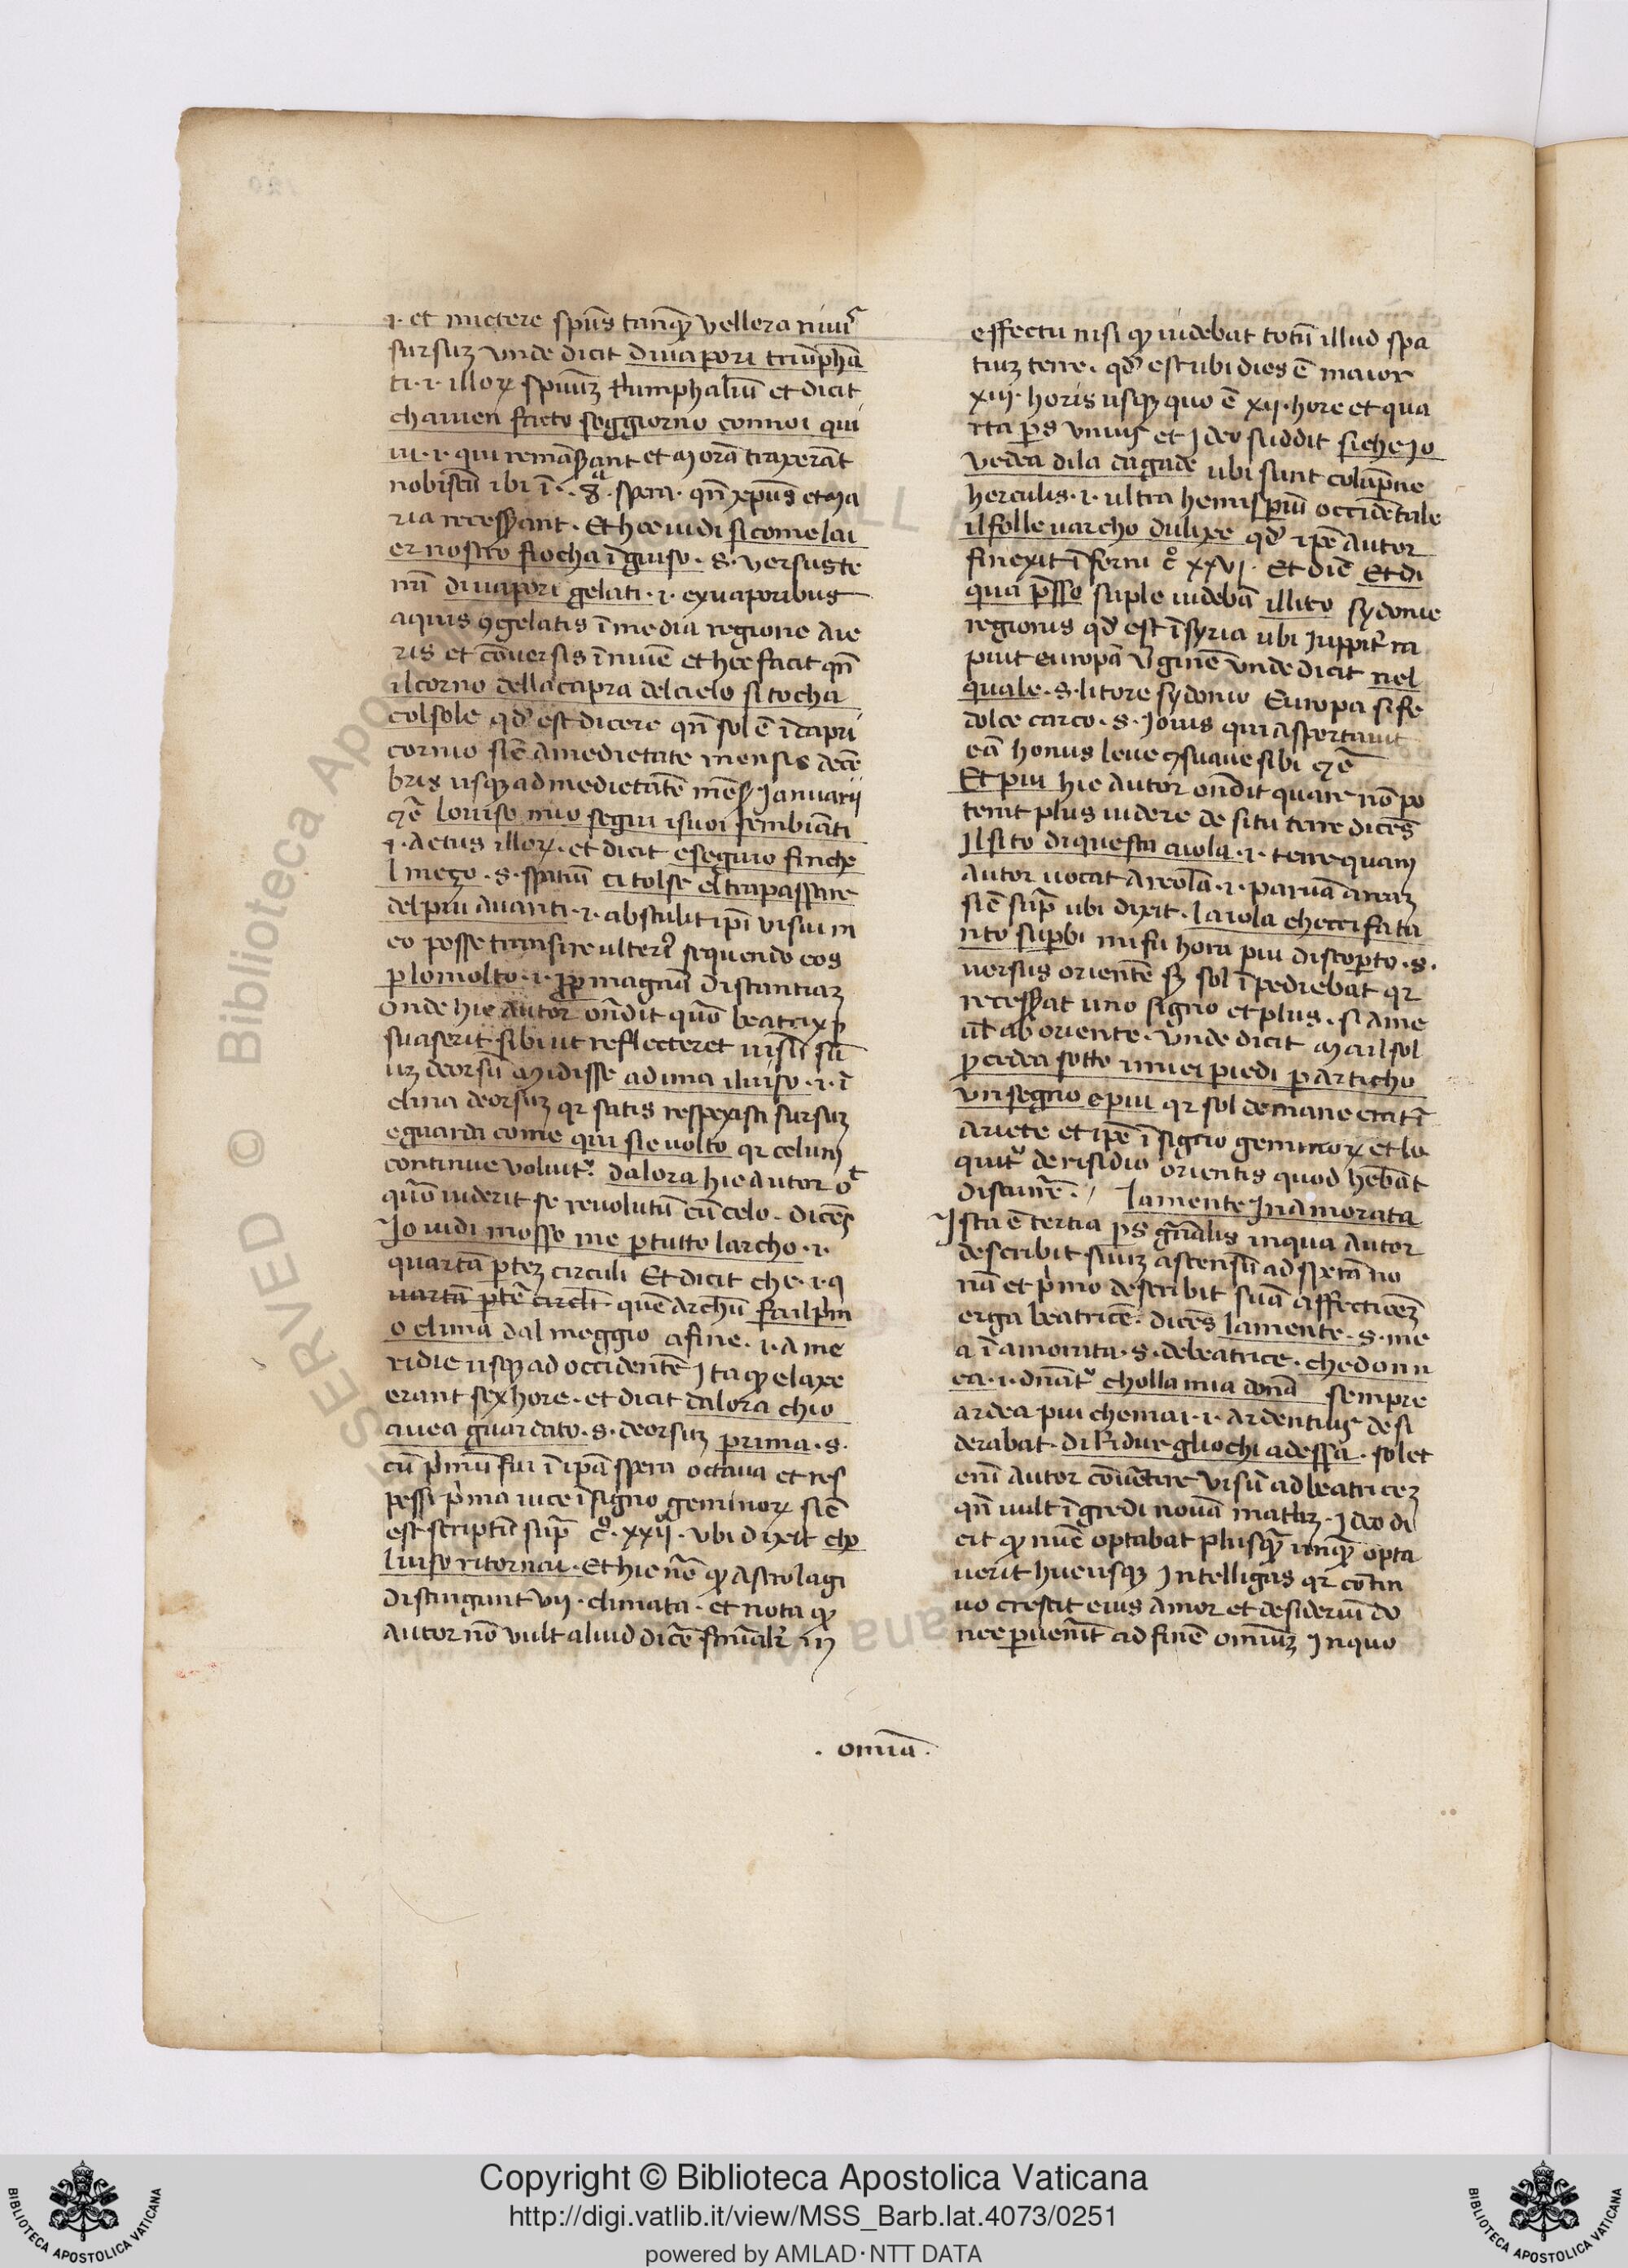 .i. et mictere spūs tanq̄ vellera niuiū
sursuȝ vnde dicit di uapori triūphā
ti .i. illoꝝ spūuȝ triumphaliū et dicit
chauien facto soggiorno connoi qui
ui .i. qui remāserant et morā traxerāt
nobiscū ibi ī .8ª. spera. qn̄ xp̄us et ma
ria recesserant. Et hec uidi si come lai
er nostro fiocha īgiuso .s. versus te
rrā di uapori gelati .i. ex uaporibus
aquis ꝯgelatis ī media regione aie
ris et cōuersis ī niuē et hec facit qn̄
il corno della capra del cielo si tocha
col sole qd̄ est dicere qn̄ sol ē ī capri
cornio sic̄ a medietate mensis decē
bris usqȝ ad medietatē mēs Januarij
lo uiso mio segui i suoi sembiāti
.i. actus illoꝝ. et dicit e seguio finche
l meço .s. spatiū ci tolse el trapassare
del piu auanti .i. abstulit ip̄i visui in
eo posse transire ulteri' sequendo eos
ꝑ lo molto .i. ꝓp magnā distantiaȝ
Onde hic autor on̄dit quō beatrix ꝑ
suaserit sibi ut reflecteret uisū su
uȝ deorsū Mi disse aduna il uiso .i. ī
clina deorsuȝ qr satis respexisti sursuȝ
e guarda come qui sie uolto qr celum
continue voluit'. dalora hic autor on̄t
quō uiderit se reuolutū cū celo. dicēs
Jo uidi mosso me ꝑ tutto larcho .i.
quartā ꝑteȝ circuli Et dicit che .i. q
uartā ꝑtē circl̄i. quē archū fa il pm
o clima dal meggio a fine .i. a me
ridie usqȝ ad occidentē Ita qȝ elaxe
erant sex hore. et dicit dalora chio
auea guardato .s. deorsuȝ prima .s.
cū p'mū fui ī ip̄a spera octaua et res
pessi p'ma uice ī signo geminoꝝ sic̄
est scriptū sup̄ c°. xxij. vbi dixit chol
uiso ritornai. Et hic no qȝ astrolagi
distingunt vij. climata. et nota qȝ
autor nō vult aliud dicē finalr' in
effectu nisi qȝ uidebat totū illud spa
tiuȝ terre. qd̄ est ubi dies ē maior
xiij. horis usqȝ quo ē xij. hore et qua
rta ps vnius et Jdeo suddit siche Jo
vedea di la da gade ubi sunt colūpne
herculis .i. ultra hemispiū occidentale
il folle uarcho dulixe qd̄ ip̄e autor
finexit ī ferni c° xxvj. Et dic̄ Et di
qua p̄sso suple uidebā il lito sydonie
regionis qd̄ est ī syria ubi Juppit' ra
puit europā v'ginē vnde dicit nel
quale .s. litore sydonio Europa si fe
dolce carco .s. Jouis qui asportauit
eā honus leue ꝯ suaue sibi
Et piu hic autor on̄dit quare nō po
terit plus uidere de situ terre dicēs
Il sito di questa aiola .i. terre quam
autor uocat areolā .i. paruā areaȝ
sic̄ sup̄ ubi dixit. laiola che ci fa ta
nto suꝑbi mi fu hora piu discoꝑto .s.
uersus orientē sȝ sol īpediebat qr
recesserat uno signo et plus. si a me
ab oriente. vnde dicit Ma il sol
ꝓcedea sotto i miei piedi ꝑ articho
vn segno e piu qr sol de mane erat ī
ariete et ip̄e ī signo geminoꝝ et lo
quit' de risidio orientis quod hēbat
discurrē. / La mente Jnamorata
Jsta ē tertia ps gn̄alis in qua autor
describit suuȝ ascensū ad spexā no
nā et p'mo describit suā affectioēȝ
erga beatricē. dicēs la mente .s. me
a īamorata .s. de beatrice. che donn
ea .i. dnāt' cholla mia donā sempre
ardea piu che mai .i. ardentius desi
derabat. di ridure gliochi ad essa. solet
enī autor cōuertere visū ad beatriceȝ
qn̄ uult īgredi nouā matiȝ. Jdeo di
cit qȝ nūc optabat plusqȝ unqȝ opta
uerit huc usqȝ Jntelligas qr contin
uo crescit eius amor et desideriū do
nec ꝑuenit ad finē omniūȝ Jn quo
. omnia .
Copyright © Biblioteca Apostolica Vaticana
http://digi.vatlib.it/view/MSS_Barb.lat.4073/0251
powered by AMLAD·NTT DATA
BIBLIOTECA APOSTOLICA VATICANA
BIBLIOTECA APOSTOLICA VATICANA